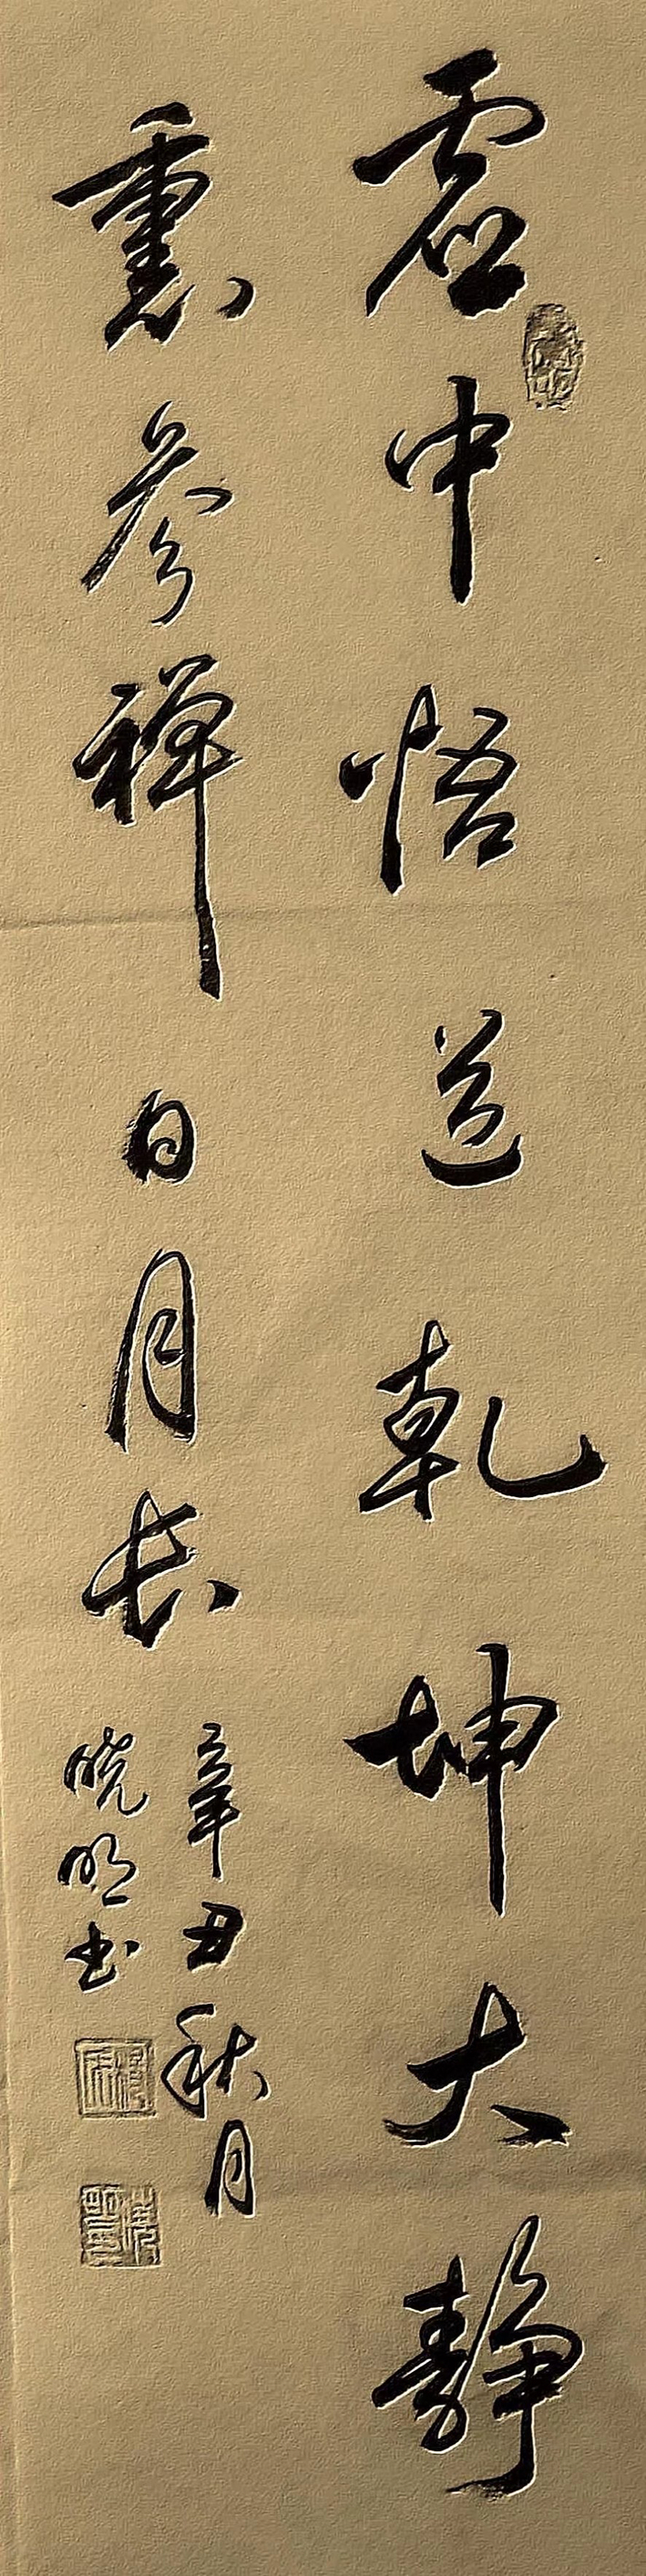 虚中悟道乾坤大静
里參禅日月长
辛丑秋月
晓明书